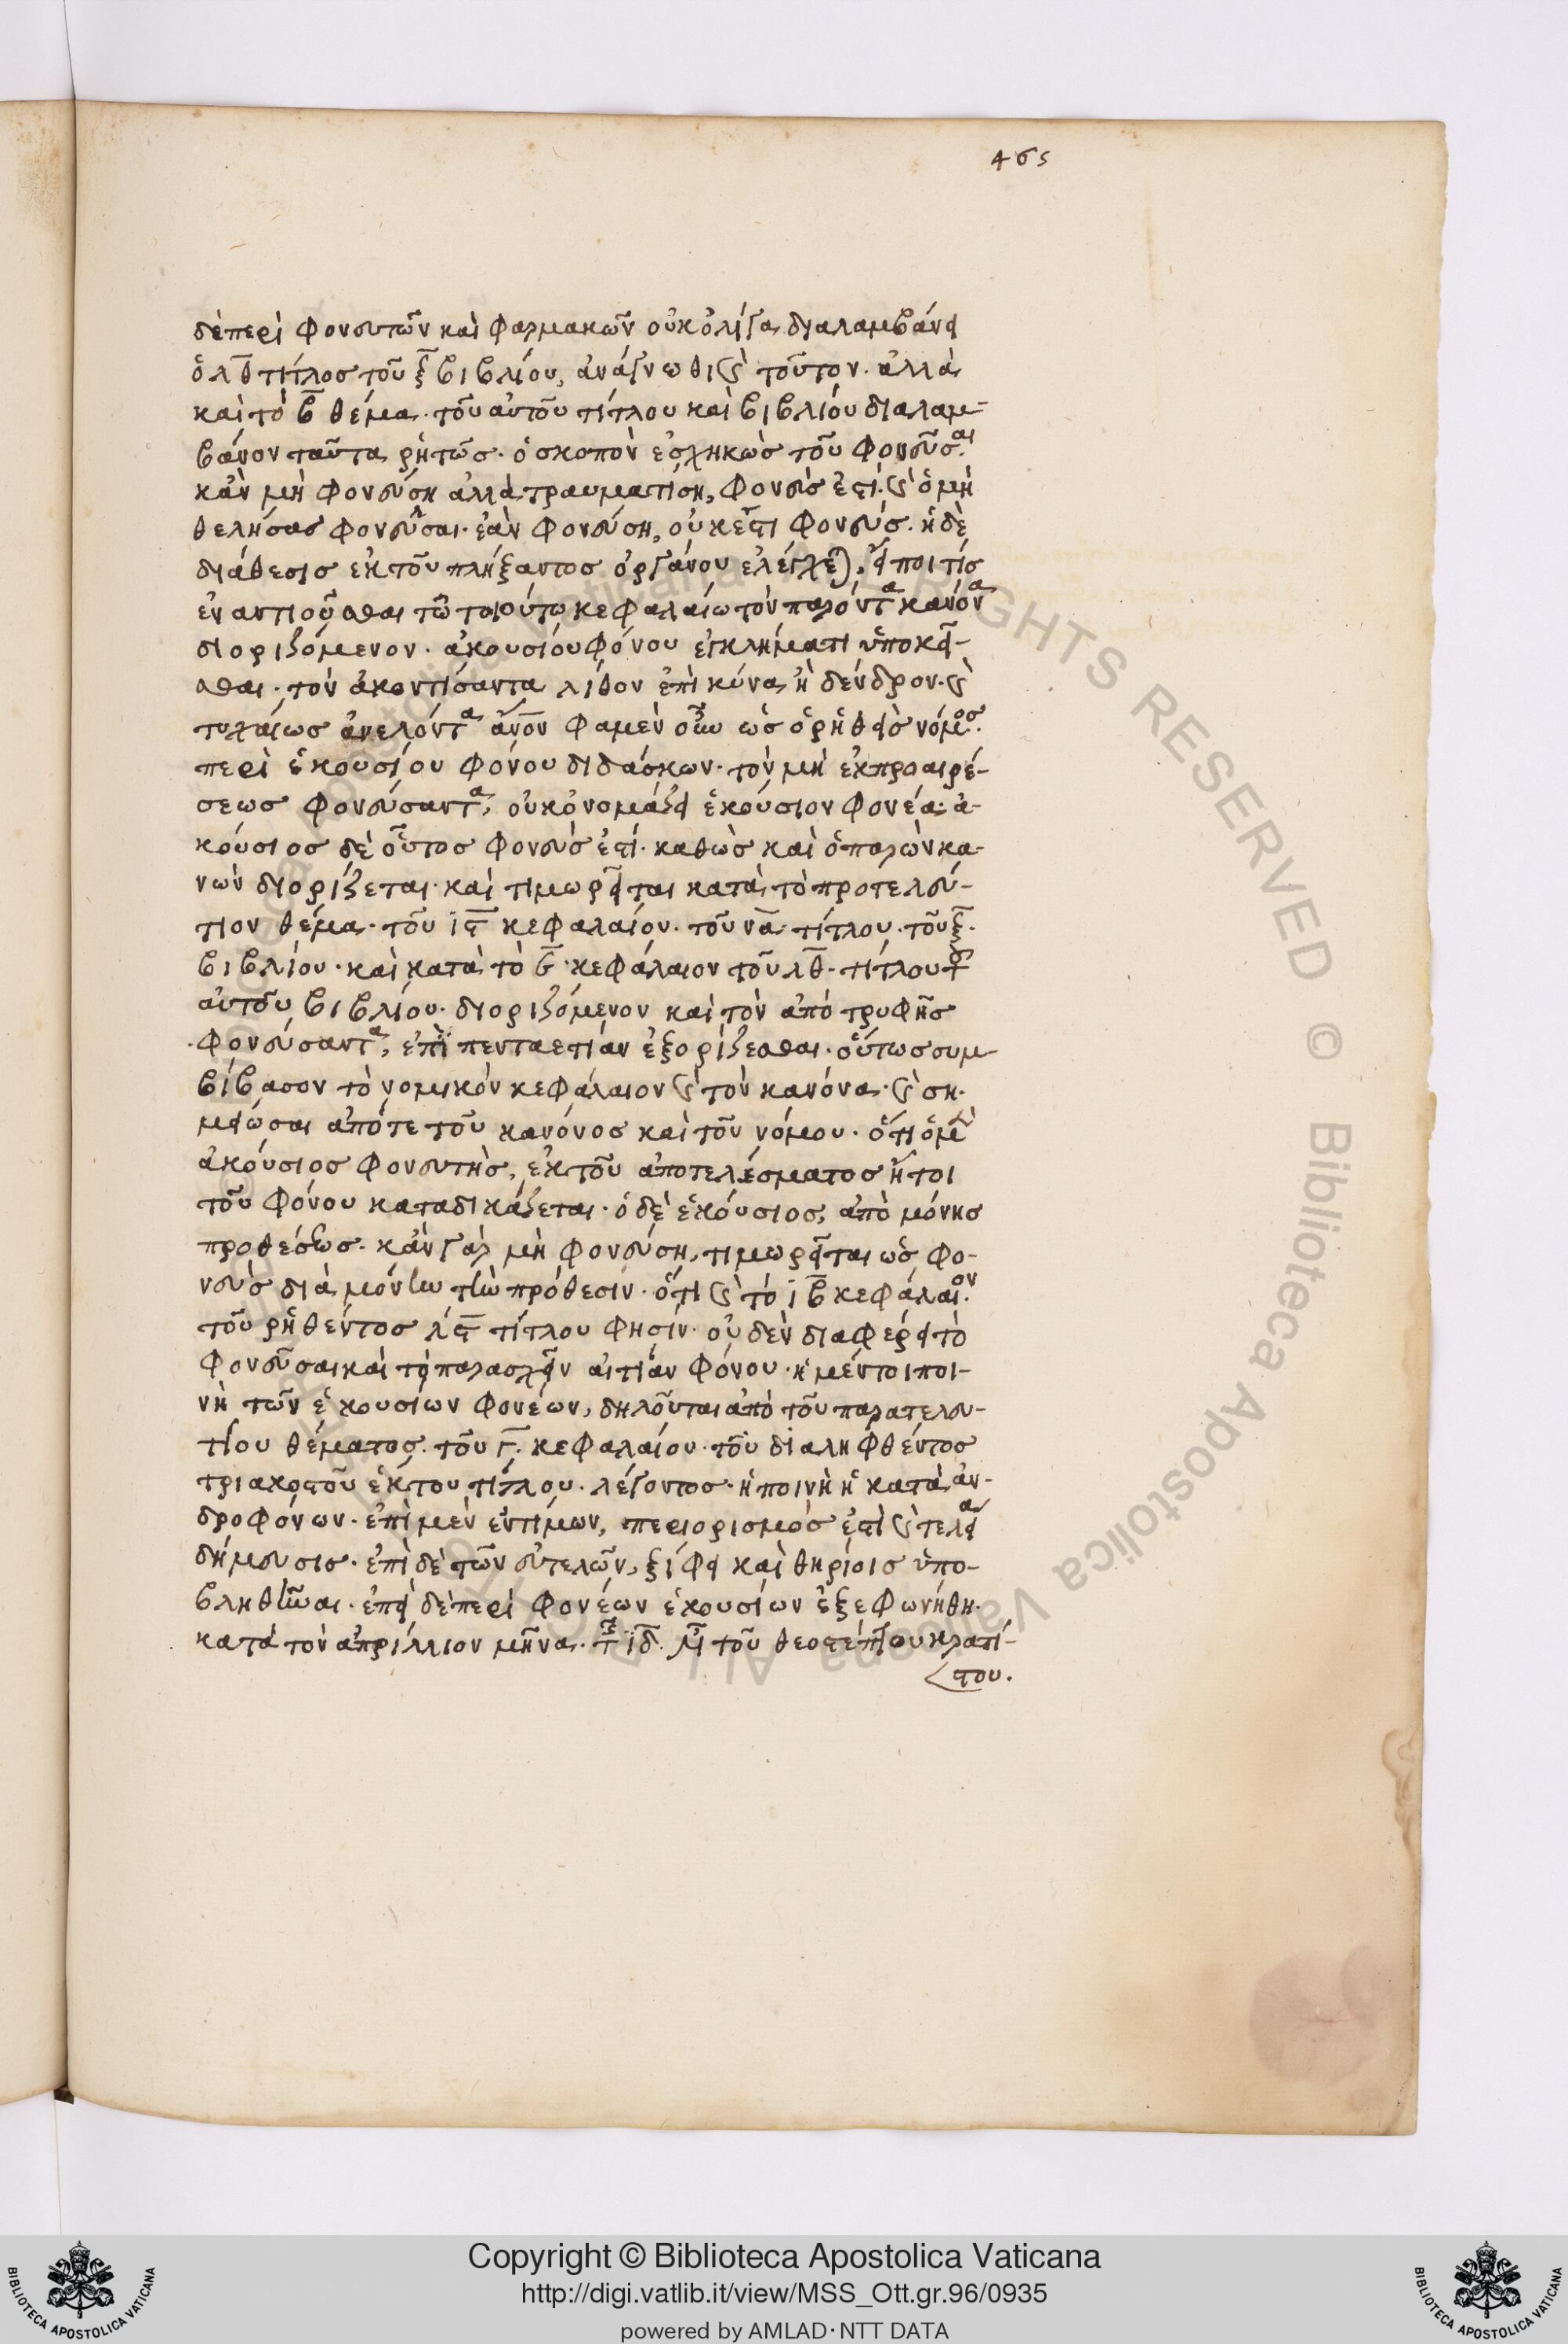 465
δὲ περὶ φονευτῶν καὶ φαρμακῶν οὐκ ὀλίγα διαλαμβάνει
ὁ λθ τίτλος τοῦ ξ βιβλίου, ἀνάγνωθι καὶ τοῦτον· ἀλλὰ
καὶ τὸ β θέμα· τοῦ αὐτοῦ τίτλου καὶ βιβλίου διαλαμ-
βάνον ταῦτα ῥητῶς· ὁ σκοπὸν ἐσχηκὼς τοῦ φονεῦσαι·
κἂν μὴ φονεύση ἀλλὰ τραυματίση, φονεύς ἐστι· καὶ ὁ μὴ
θελήσας φονεῦσαι· ἐὰν φονεύση, οὐκ ἔστι φονεύς· ἡ δὲ
διάθεσις ἐκ τοῦ πλήξαντος ὀργάνου ἐλέγχεται, εἴποι τίς
ἐναντιοῦσθαι τῶ τοιούτω κεφαλαίω τὸν παρόντα κανόνα
διοριζόμενον· ἀκουσίου φόνου ἐγκλήματι ὑποκεῖ-
σθαι· τὸν ἀκοντίσαντα λίθον ἐπὶ κύνα ἢ δένδρον· καὶ
τυχαίως ἀνελόντα ἄνον φαμὲν οὖν ὡς ὁ ῥηθεὶς νόμος·
περὶ ἑκουσίου φόνου διδάσκων· τὸν μὴ ἐκ προαιρέ-
σεως φονεύσαντα, οὐκ ὀνομάζει ἑκούσιον φονέα· ἀ-
κούσιος δὲ οὗτος φονεύς ἐστι· καθὼς καὶ ὁ παρὼν κα-
νὼν διορίζεται· καὶ τιμωρεῖται κατὰ τὸ προτελεύ-
τιον θέμα· τοῦ ιϛ κεφαλαίου· τοῦ να τίτλου· τοῦ ξ·
βιβλίου· καὶ κατὰ τὸ ϛ· κεφάλαιον τοῦ λθ· τίτλου τοῦ
αὐτοῦ βιβλίου· διοριζόμενον καὶ τὸν ἀπὸ τρυφῆς
φονεύσαντα, ἐπὶ πενταετίαν ἐξορίζεσθαι· οὕτως συμ-
βίβασον τὸ νομικὸν κεφάλαιον καὶ τὸν κανόνα· καὶ ση-
μείωσαι ἀπό τε τοῦ κανόνος καὶ τοῦ νόμου· ὅτι ὁ μὲν
ἀκούσιος φονευτὴς, ἐκ τοῦ ἀποτελέσματος ἤτοι
τοῦ φόνου καταδικάζεται· ὁ δὲ ἑκούσιος, ἀπὸ μόνης
προθέσεως· κἂν γὰρ μὴ φονεύση, τιμωρεῖται ὡς φο-
νεὺς διὰ μόνην τὴν πρόθεσιν· ὅτι καὶ τὸ ιβ κεφάλαιον·
τοῦ ῥηθέντος λϛ τίτλου φησίν· οὐδὲν διαφέρει τὸ
φονεῦσαι καὶ τὸ παρασχεῖν αἰτίαν φόνου· ἡ μέντοι ποι-
νὴ τῶν ἑκουσίων φονέων, δηλοῦται ἀπὸ τοῦ παρατελευ-
τίου θέματος· τοῦ γ· κεφαλαίου· τοῦ διαληφθέντος
τριακοστοῦ ἕκτου τίτλου· λέγοντος· ἡ ποινὴ ἡ κατὰ ἀν-
δροφόνων· ἐπὶ μὲν ἐντίμων, περιορισμός ἐστι καὶ τελεία
δήμευσις· ἐπὶ δὲ τῶν εὐτελῶν, ξίφει καὶ θηρίοις ὑπο-
βληθῆναι· ἐπεὶ δὲ περὶ φονέων ἑκουσίων ἐξεφωνήθη·
κατὰ τὸν ἀπρίλλιον μῆνα· τῆς ιδ· τοῦ θεοστέπτου κρατί-
στου·
RIGHTS RESERVED © Biblioteca Apostolica Vaticana ALL
BIBLIOTECA APOSTOLICA VATICANA
Copyright © Biblioteca Apostolica Vaticana
http://digi.vatlib.it/view/MSS_Ott.gr.96/0935
powered by AMLAD·NTT DATA
BIBLIOTECA APOSTOLICA VATICANA